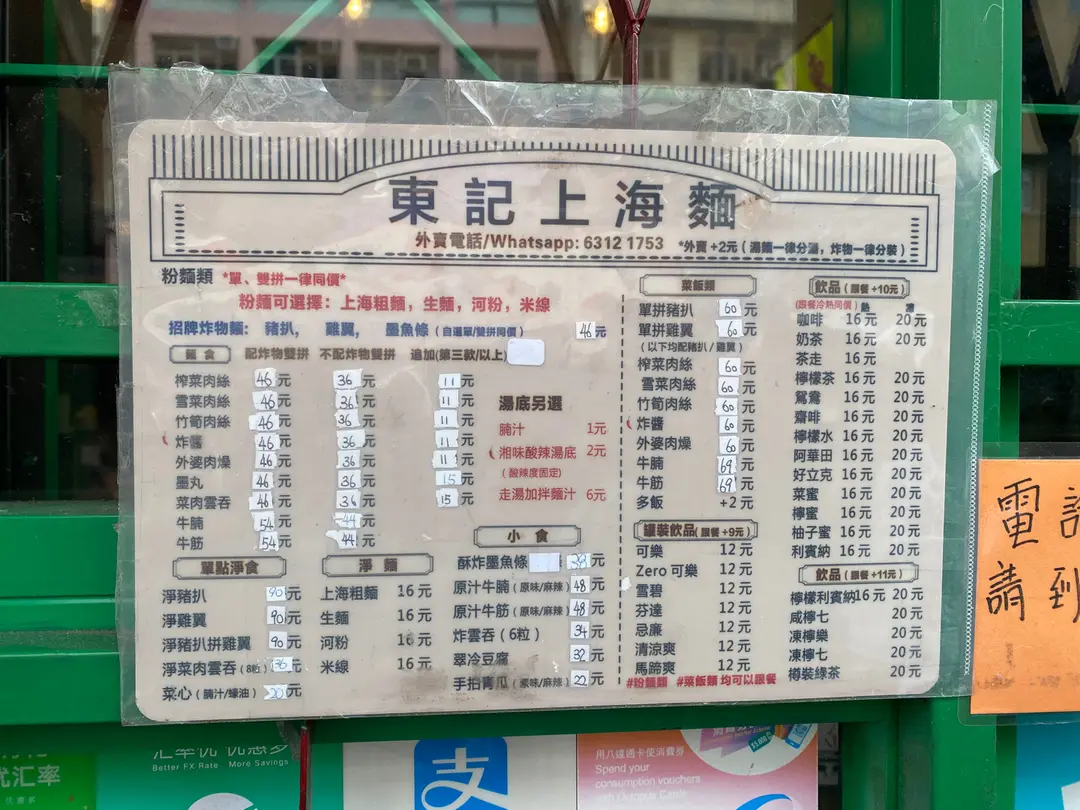 東記上海麵
外賣電話/Whatsapp: 6312 1753 *外賣 +2元 ( 湯麵一律分湯，炸物一律分裝 )
粉麵類 *單、雙拼一律同價*
粉麵可選擇：上海粗麵，生麵，河粉，米線
招牌炸物麵： 豬扒， 雞翼， 墨魚條 ( 自選單/雙拼同價 ) 46元
配炸物雙拼 不配炸物雙拼 追加(第三款/以上)
榨菜肉絲 46元 36元 11元
雪菜肉絲 46元 36元 11元
竹筍肉絲 46元 36元 11元
炸醬 46元 36元 11元
外婆肉燥 46元 36元 11元
墨丸 46元 36元 15元
菜肉雲吞 46元 36元 15元
牛腩 54元 44元
牛筋 54元 44元
湯底另選
腩汁 1元
湘味酸辣湯底 2元
( 酸辣度固定)
走湯加拌麵汁 6元
單點淨食
淨豬扒 90元
淨雞翼 90元
淨豬扒拼雞翼 90元
淨菜肉雲吞 ( 8粒 ) 36元
菜心 ( 腩汁/蠔油 ) 20元
淨麵
上海粗麵 16元
生麵 16元
河粉 16元
米線 16元
小食
酥炸墨魚條 38元
原汁牛腩 ( 原味/麻辣 ) 48元
原汁牛筋 ( 原味/麻辣 ) 48元
炸雲吞 ( 6粒 ) 34元
翠冷豆腐 32元
手拍青瓜 ( 原味/麻辣 ) 22元
菜飯類
單拼豬扒 60元
單拼雞翼 60元
( 以下均配豬扒 / 雞翼 )
榨菜肉絲 60元
雪菜肉絲 60元
竹筍肉絲 60元
炸醬 60元
外婆肉燥 60元
牛腩 69元
牛筋 69元
多飯 +2元
罐裝飲品( 跟餐 +9元 )
可樂 12元
Zero 可樂 12元
雪碧 12元
芬達 12元
忌廉 12元
清涼爽 12元
馬蹄爽 12元
#粉麵類 #菜飯類 均可以跟餐
飲品 ( 跟餐 +10元 )
(跟餐冷熱同價 ) 熱 凍
咖啡 16元 20元
奶茶 16元 20元
茶走 16元
檸檬茶 16元 20元
鴛鴦 16元 20元
齋啡 16元 20元
檸檬水 16元 20元
阿華田 16元 20元
好立克 16元 20元
菜蜜 16元 20元
檸蜜 16元 20元
柚子蜜 16元 20元
利賓納 16元 20元
飲品 ( 跟餐 +11元 )
檸檬利賓納 16元 20元
咸檸七 20元
凍檸樂 20元
凍檸七 20元
樽裝綠茶 20元
電
請到
优汇率
优惠多
汇率优 优惠多
Better FX Rate More Savings
支
用八達通卡使消費券
Spend your
consumption vouchers
with Octopus Cards